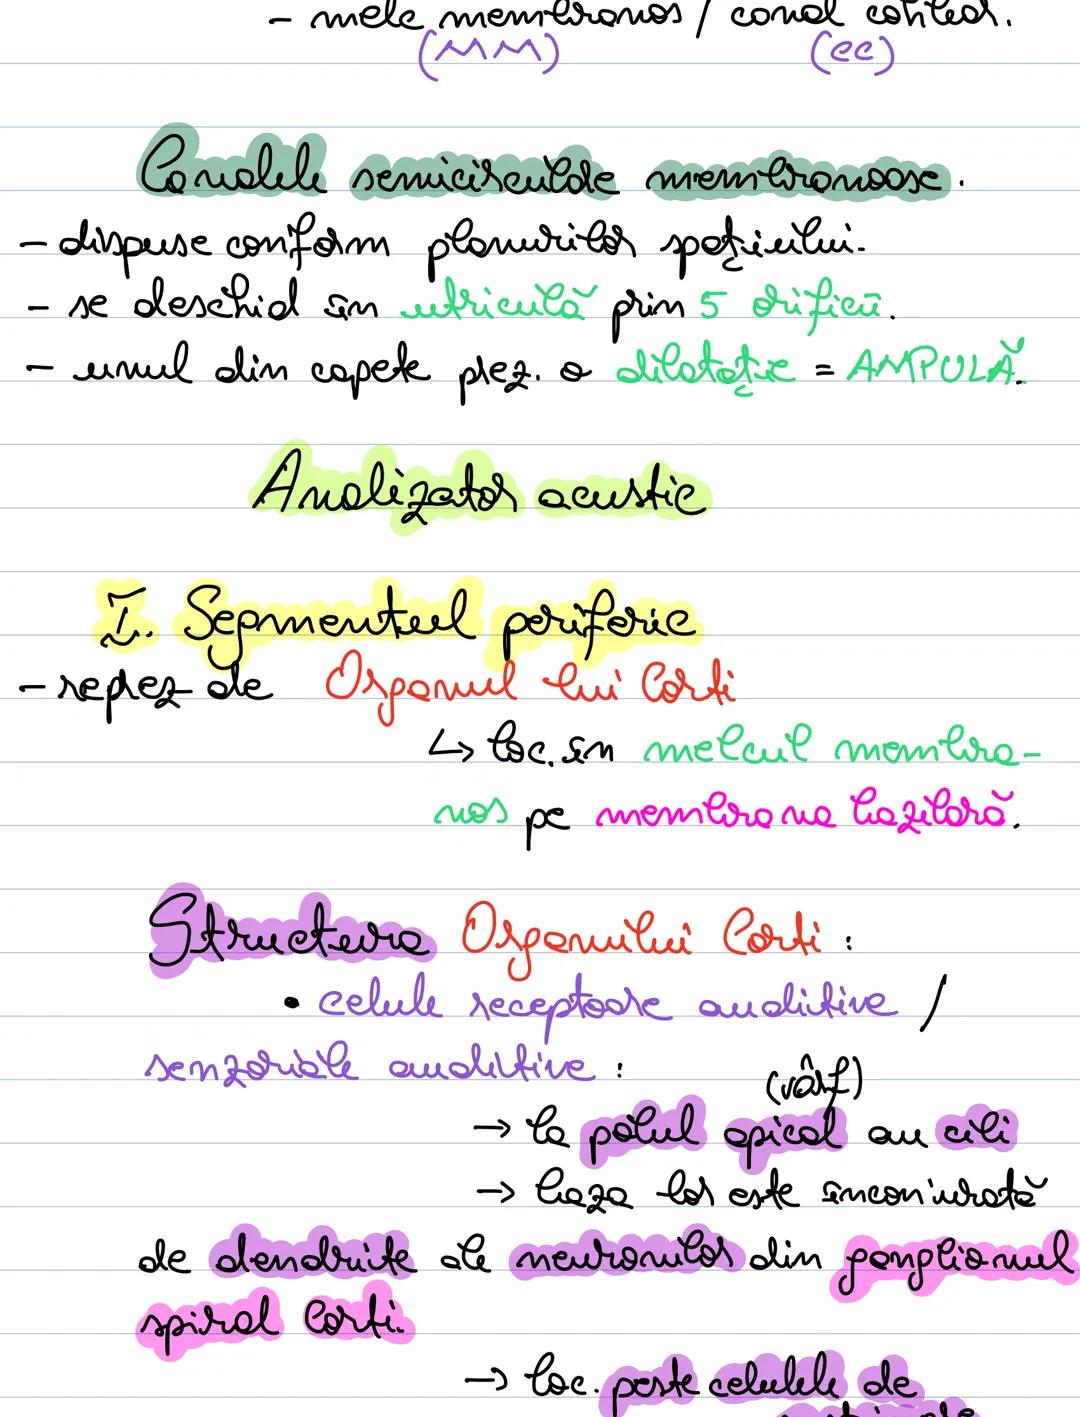 - melc membranos / canal cohlear.
(MM) (cc)
Canalele semicirculare membranoase.
- dispuse conform planurilor spațiului.
- se deschid în utriculă prin 5 orificii.
- unul din capete prez. o dilatație = AMPULĂ.
Analizator acustic
I. Segmentul periferic
- reprez de Organul lui Corti
↳ loc. în melcul membra-
nos pe membrana bazilară.
Structura Organului Corti :
• celule receptoare auditive /
senzoriale auditive :
(vârf)
→ la polul apical au cili
→ baza lor este înconjurată
de dendrite ale neuronilor din ganglionul
spiral Corti.
→ loc. peste celulele de